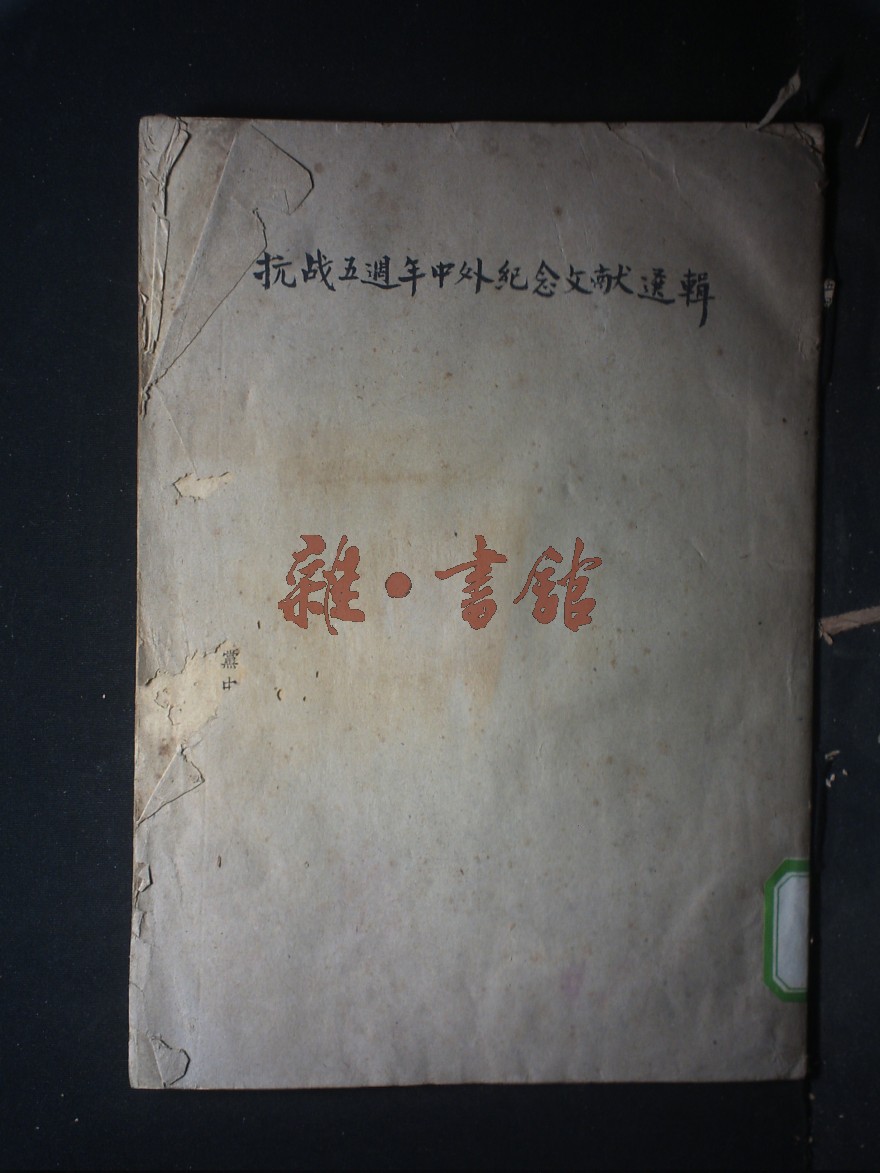 抗战五週年中外纪念文献選輯
雜·書館